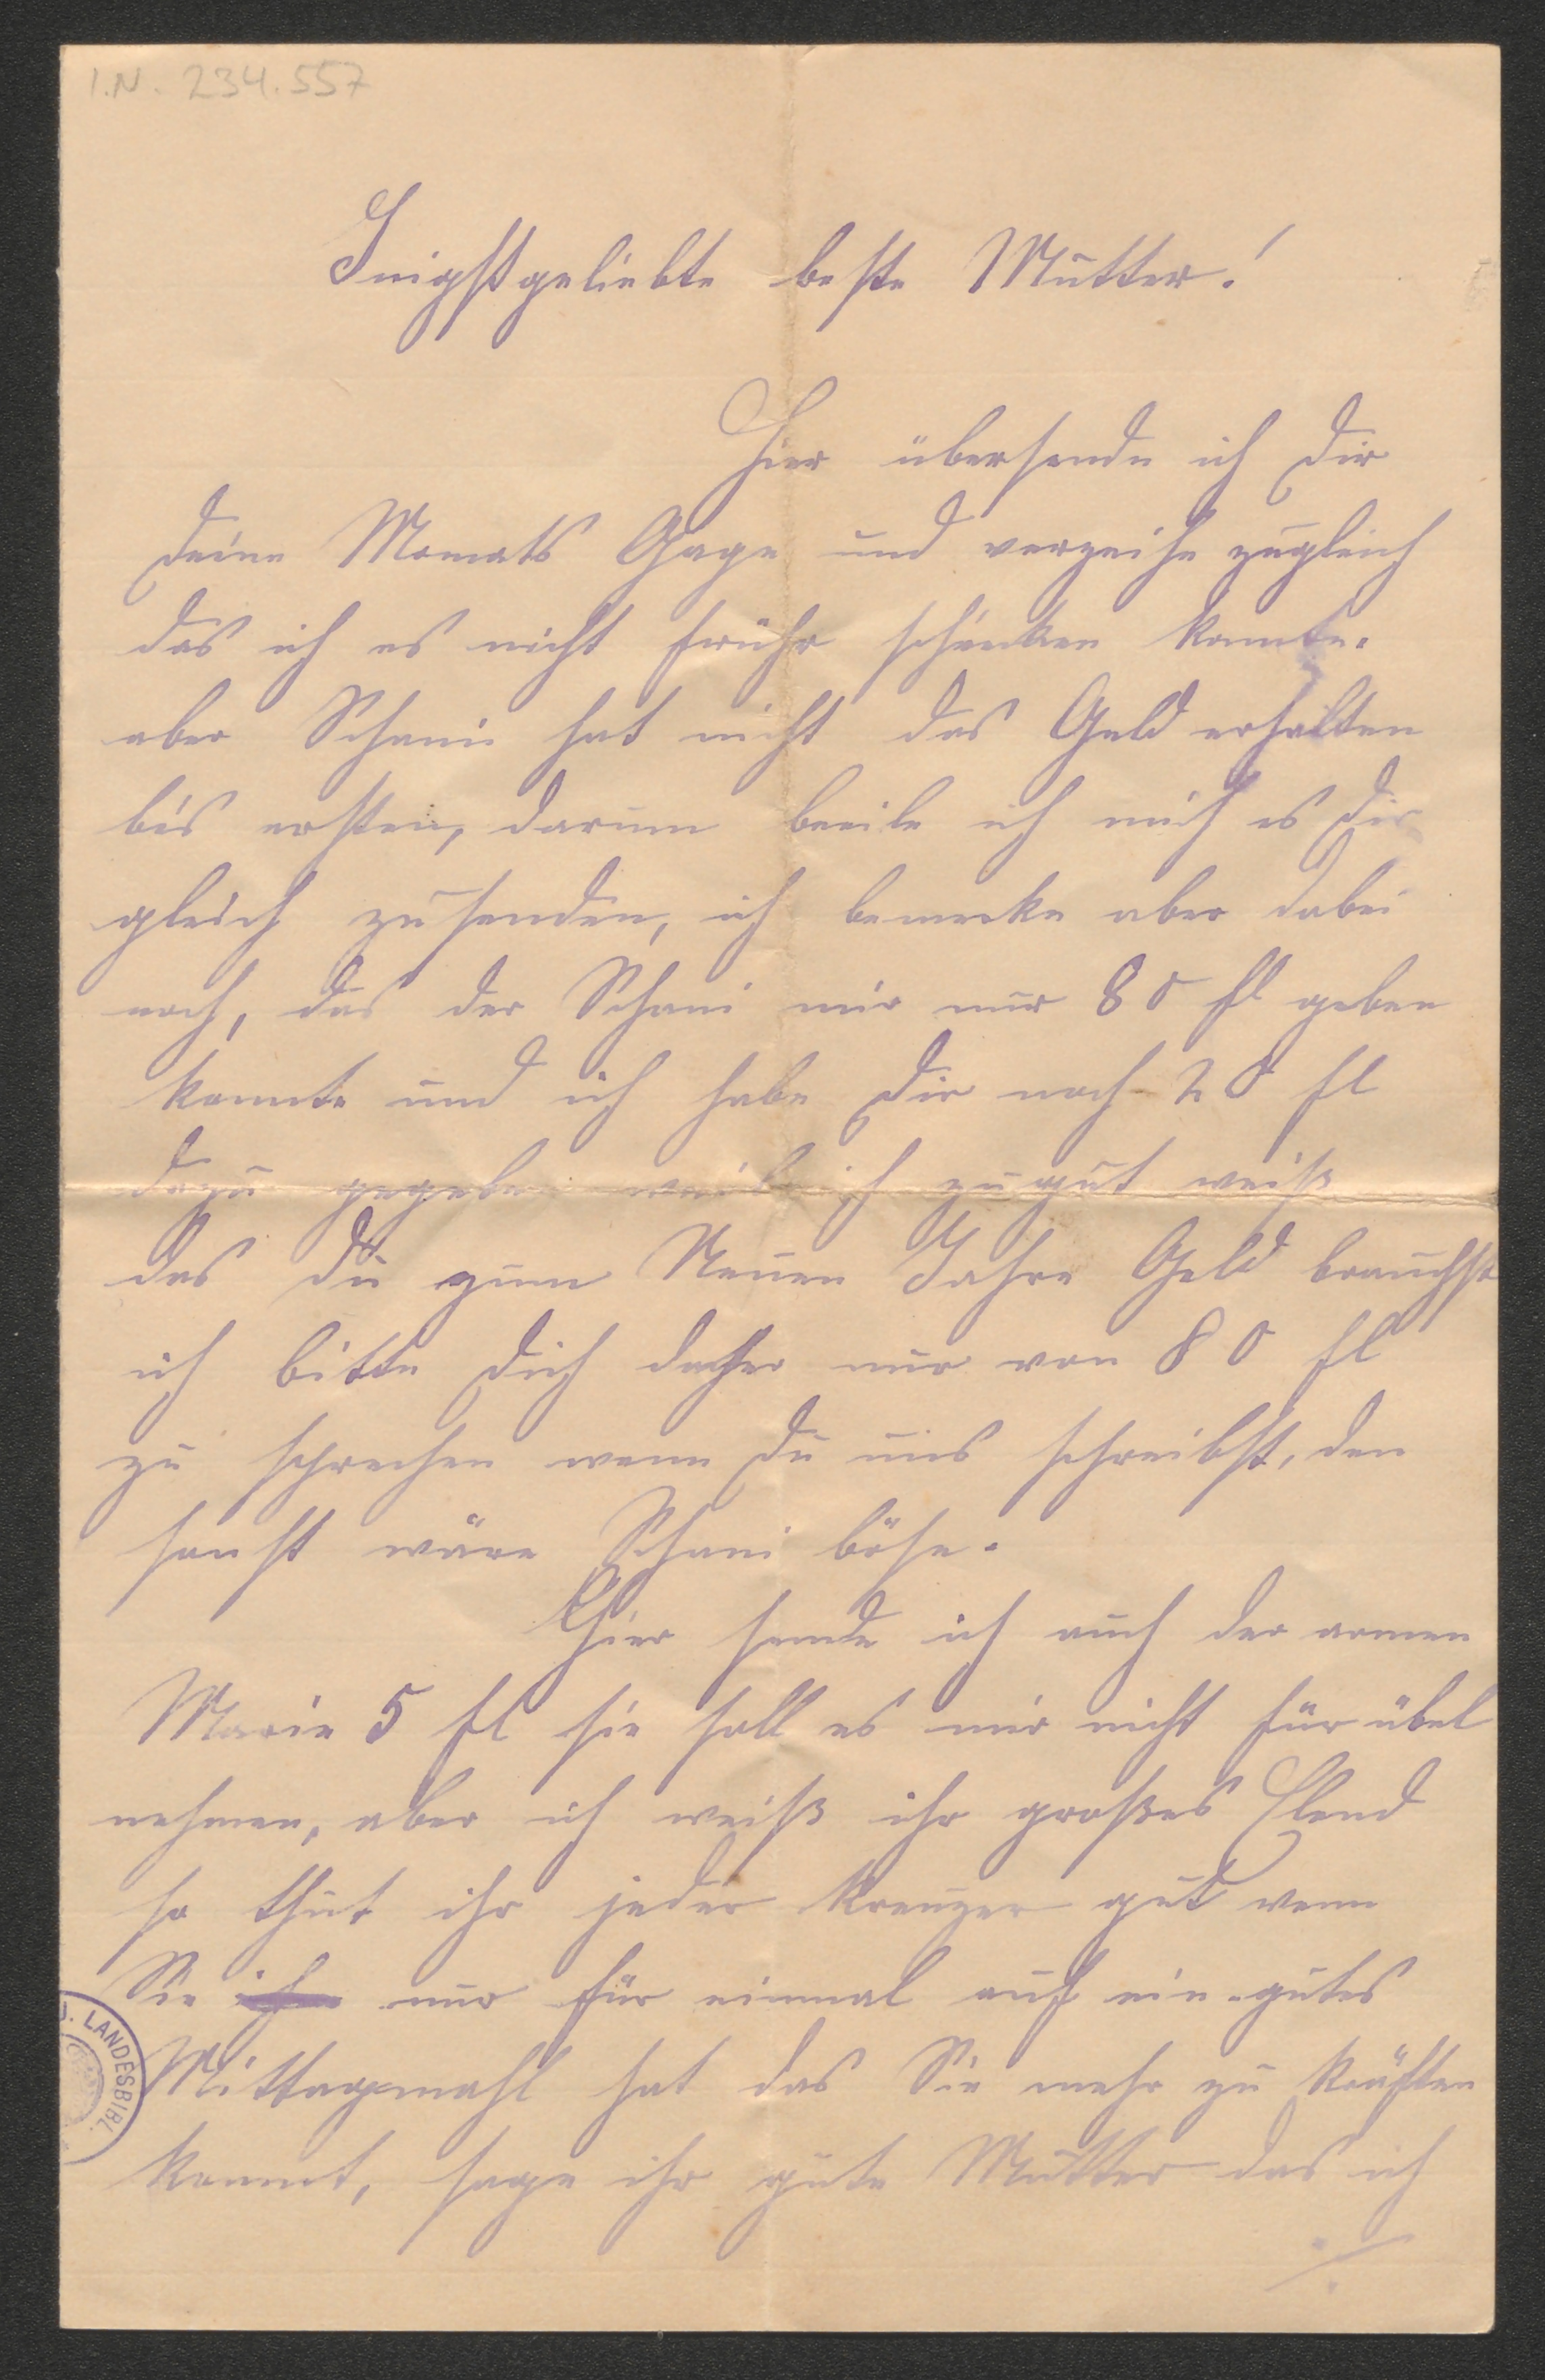 I.N. 234.557
Inigstgeliebte beste Mutter!
Hier übersende ich Dir
Deine Monats Gage und verzeihe zugleich
das ich es nicht frühr schicken konnte.
aber Schani hat nicht das Geld erhalten
bis ersten, darum beeile ich mich es Dir
gleich zu senden, ich bemerke aber dabei
noch, das der Schani mir nur 80 fl geben
konnte und ich habe Dir noch 20 fl
dazu gegeben weil ich zu gut weiß
das Du zum Neuen Jahre Geld brauchst
ich bitte Dich daher nur von 80 fl
zu sprechen wenn Du uns schreibst, den
sonst wäre Schani böse.
Hier sende ich auch der armen
Marie 5 fl sie soll es mir nicht für übel
nehmen, aber ich weiß ihr großes Elend
so thut ihr jeder Kreuzer gut wenn
Sie nur für einmal auf ein gutes
Mittagmahl hat das Sie mehr zu Kräften
kommt, sage ihr gute Mutter das ich
./.
LANDESBIBL.